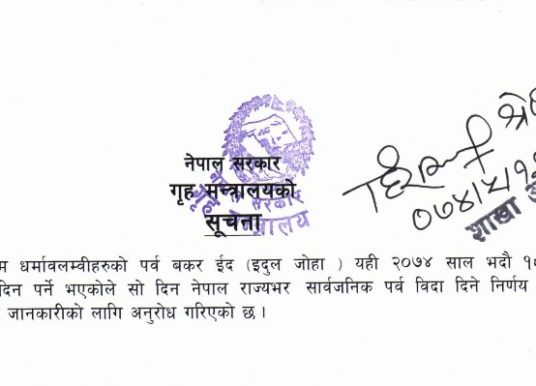 नेपाल सरकार
गृह मन्त्रालयको
सूचना
०७४।५।१
शाखा
म धर्मावलम्वीहरुको पर्व बकर ईद (इदुल जोहा ) यही २०७४ साल भदौ
दिन पर्ने भएकोले सो दिन नेपाल राज्यभर सार्वजनिक पर्व विदा दिने निर्णय
जानकारीको लागि अनुरोध गरिएको छ।